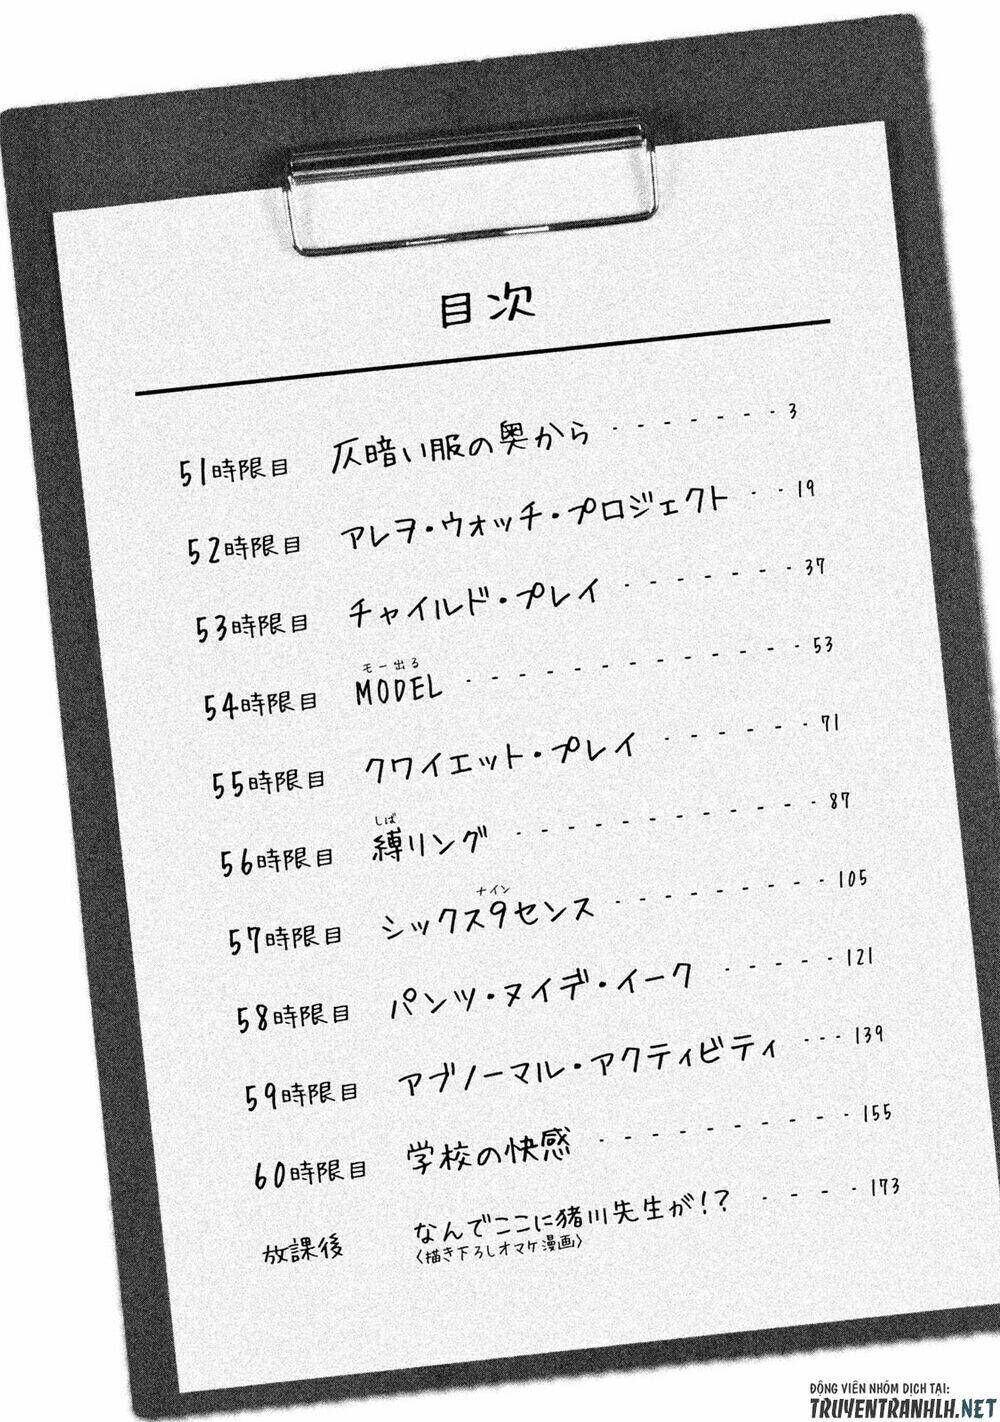 目次
51時限目 仄暗い服の奥から ・・・・・・・ 3
52時限目 アレヲ・ウォッチ・プロジェクト ・・ 19
53時限目 チャイルド・プレイ ・・・・・・・ 37
モー出る
54時限目 MODEL ・・・・・・・・・・・・ 53
55時限目 クワイエット・プレイ ・・・・・・ 71
しば
56時限目 縛リング ・・・・・・・・・・・ 87
ナイン
57時限目 シックス9センス ・・・・・・・・ 105
58時限目 パンツ・ヌイデ・イーク ・・・・・ 121
59時限目 アブノーマル・アクティビティ ・・・ 139
60時限目 学校の快感 ・・・・・・・・・・ 155
放課後 なんでここに猪川先生が!? ・・・・ 173
〈描き下ろしオマケ漫画〉
ĐỘNG VIÊN NHÓM DỊCH TẠI:
TRUYENTRANHLH.NET